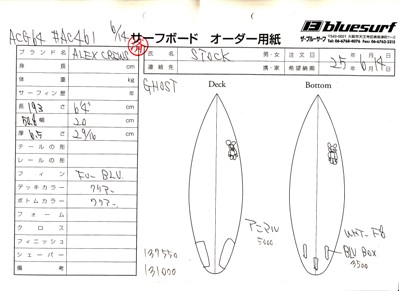 AC664 #AC461 6/14
サーフボード オーダー用紙
bluesurf
ザ・ブルーサーフ
ブランド名 ALEX CREWS
氏名 STOCK 男・女 注文日 25年 6月 14日
連絡先 携/家 希望納期
身長 cm
体重 kg
サーフィン歴 年
長 193 6'4"
幅 50.8 20
厚 6.5 2 9/16
テールの形
レールの形
フィン FU- BLU
デッキカラー クリアー
ボトムカラー クリアー
フォーム
クロス
フィニッシュ
シェーパー
備考
GHOST
Deck
Bottom
アニマル
5000
WHT- F8
BLU BOX
3500
137550
131000